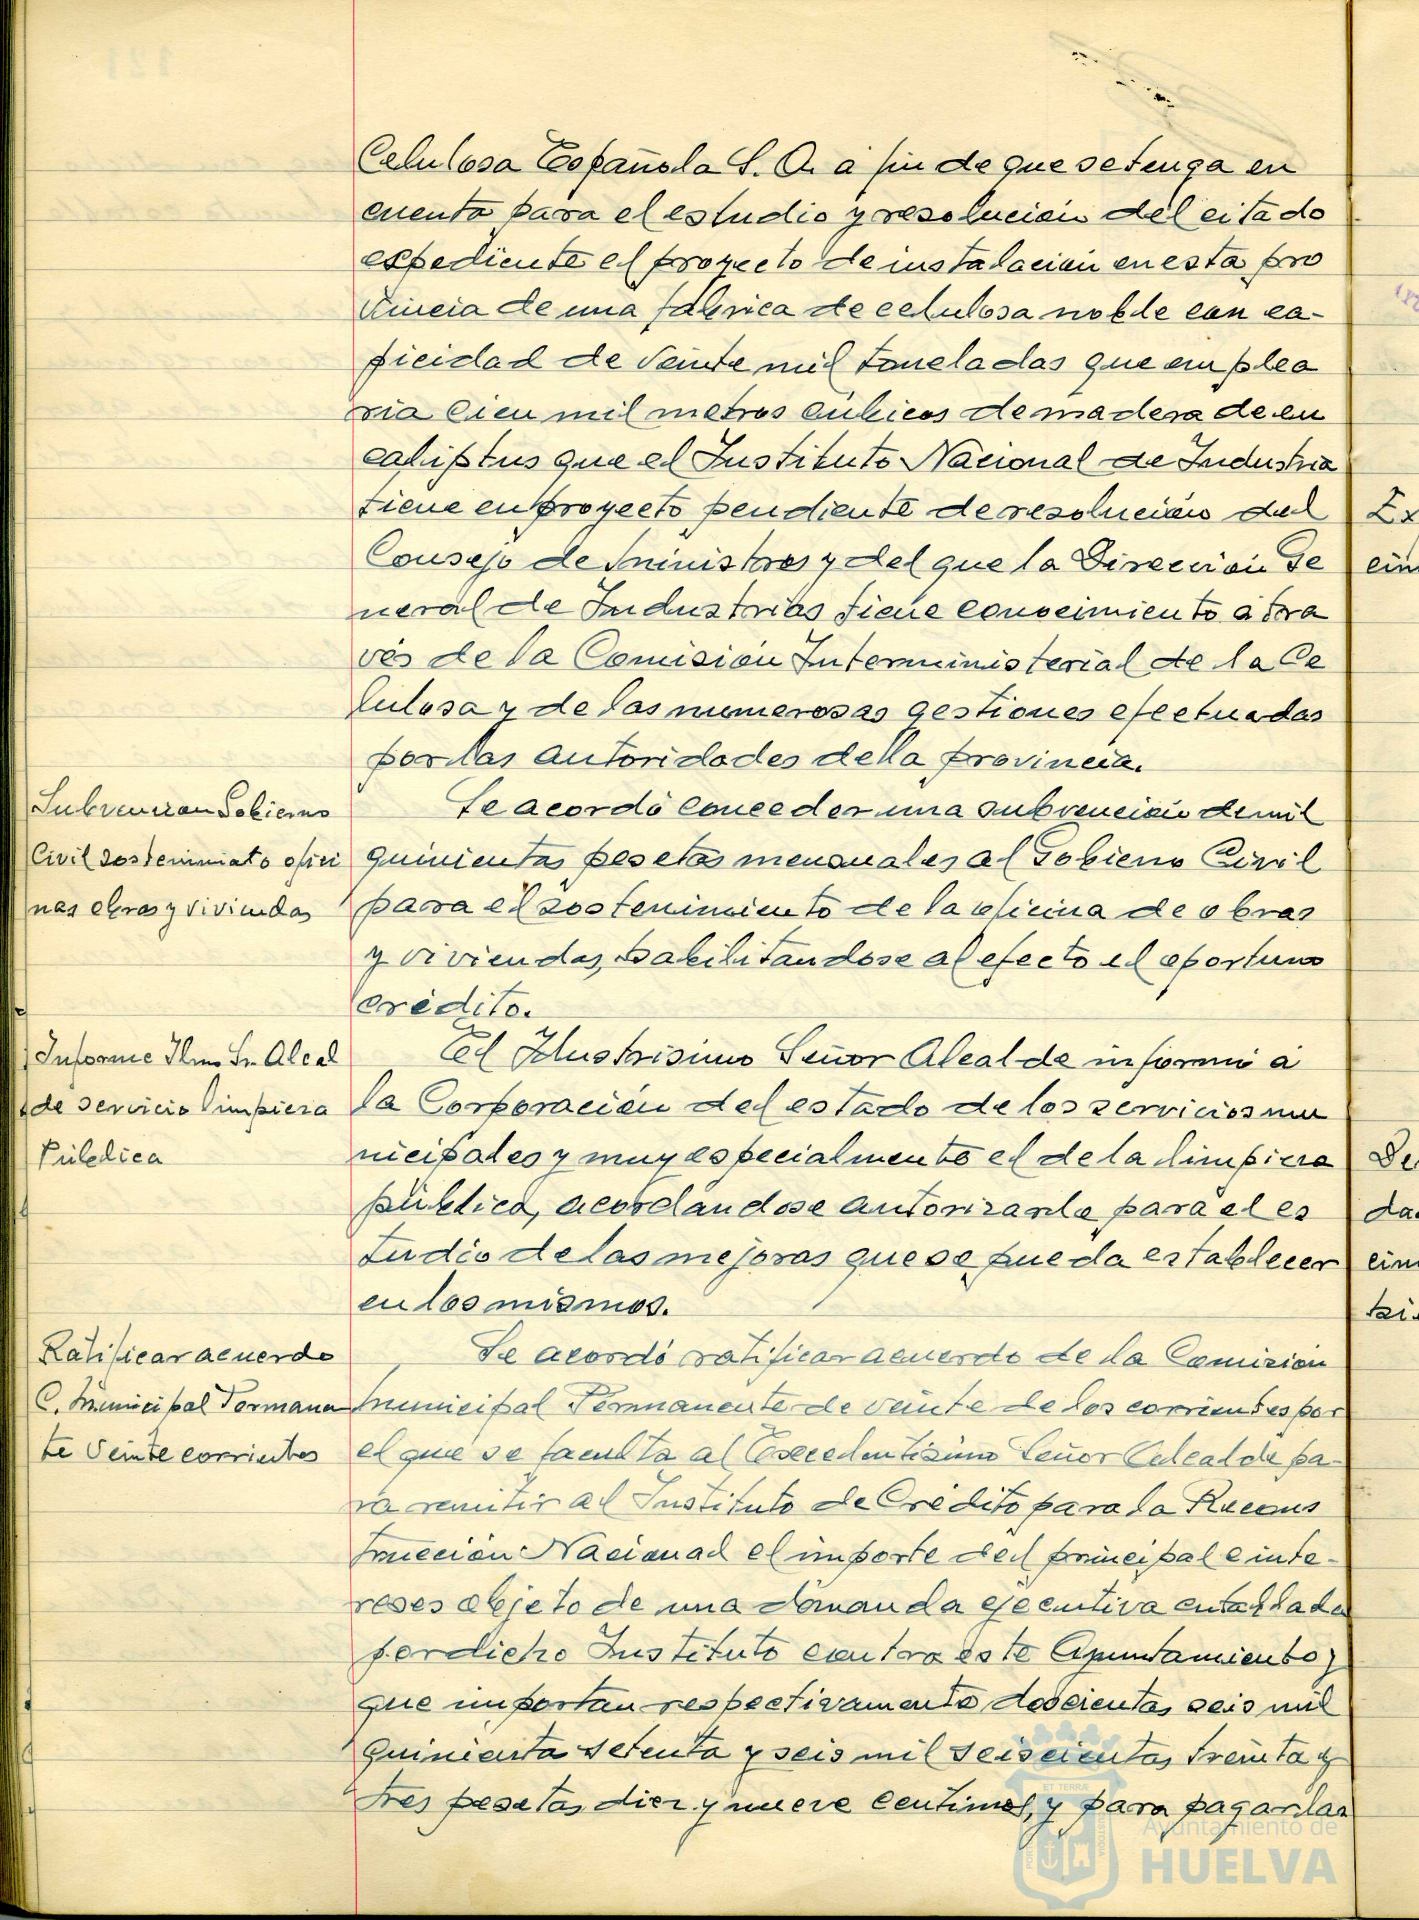 Celulosa Española S. A. a fin de que se tenga en
cuenta para el estudio y resolución del citado
expediente el proyecto de instalación en esta pro
vincia de una fábrica de celulosa noble con ca-
picidad de veinte mil toneladas que emplea
ria cien mil metros cúbicos de madera de eu
caliptus que el Instituto Nacional de Industria
tiene en proyecto pendiente de resolución del
Consejo de Ministros y del que la Dirección Ge
neral de Industrias tiene conocimiento a tra
vés de la Comisión Interministerial de la Ce
lulosa y de las numerosas gestiones efectuadas
por las autoridades de la provincia.
Subvencion Gobierno
Civil sostenimiato ofici
nas obras y viviendas
Se acordó conceder una subvención de mil
quinientas pesetas mensuales al Gobierno Civil
para el sostenimiento de la oficina de obras
y viviendas, habilitandose al efecto el oportuno
crédito.
Informe Ilmo Sr. Alcal
de servicio limpieza
Pública
El Ilustrisimo Señor Alcalde informó a
la Corporación del estado de los servicios mu
nicipales y muy especialmente el de la limpieza
pública, acordandose autorizarle para el es
tudio de las mejoras que se pueda establecer
en los mismos.
Ratificar acuerdo
C. Municipal Permanen
te veinte corrientes
Se acordó ratificar acuerdo de la Comisión
Municipal Permanente de veinte de los corrientes por
el que se faculta al Excelentisimo Señor Alcalde pa-
ra remitir al Instituto de Crédito para la Recons
trucción Nacional el importe del principal e inte-
reses objeto de una demanda ejecutiva entablada
por dicho Instituto contra este Ayuntamiento y
que importan respectivamente doscientas seis mil
quinientas setenta y seis mil seiscientas treinta y
tres pesetas diez y nueve centimos, y para pagarlas
Ayuntamiento de
HUELVA